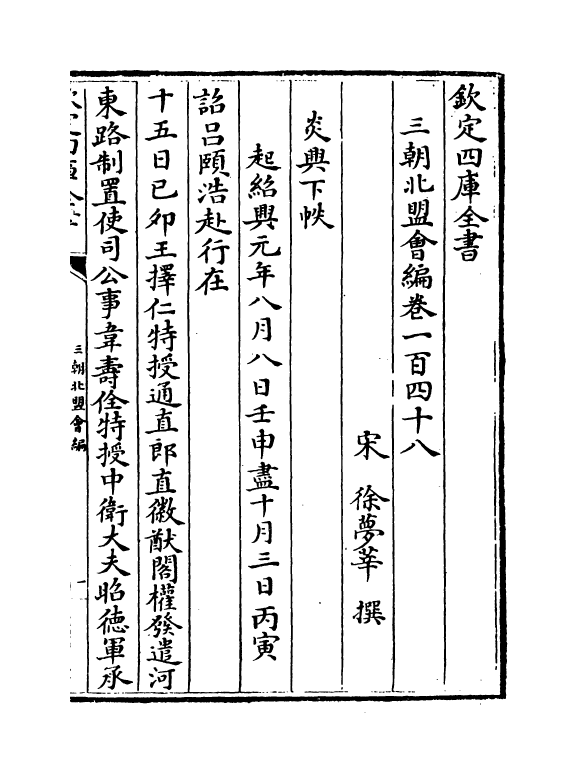 欽定四庫全書
三朝北盟會編卷一百四十八
宋 徐夢莘 撰
炎興下帙
起紹興元年八月八日壬申盡十月三日丙寅
詔呂頤浩赴行在
十五日己卯王擇仁特授通直郎直徽猷閣權發遣河
東路制置使司公事韋壽佺特授中衛大夫昭徳軍承
三朝北盟會編
一